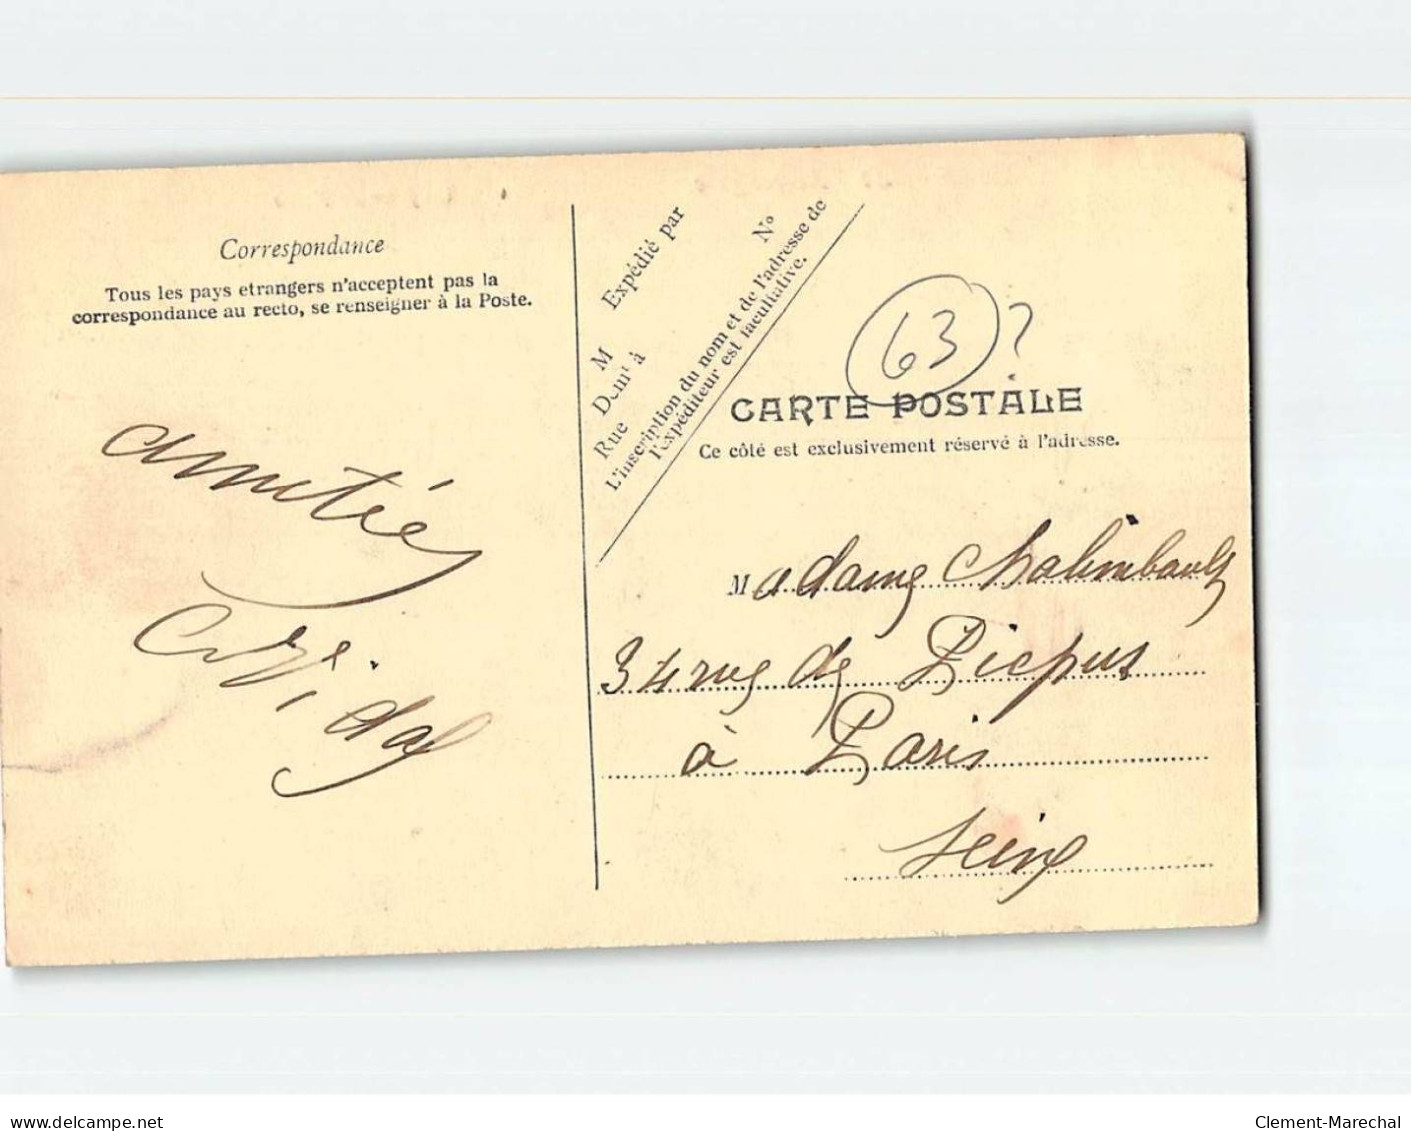 Correspondance
Tous les pays etrangers n'acceptent pas la
correspondance au recto, se renseigner à la Poste.
amitiés
Vidal
Expédié par
M
N°
Dem^t à
Rue
L'inscription du nom et de l'adresse de
l'expéditeur est facultative.
63 ?
CARTE POSTALE
Ce côté est exclusivement réservé à l'adresse.
Madame
34 rue de Picpus
à Paris
Seine
www.delcampe.net
Clement-Marechal